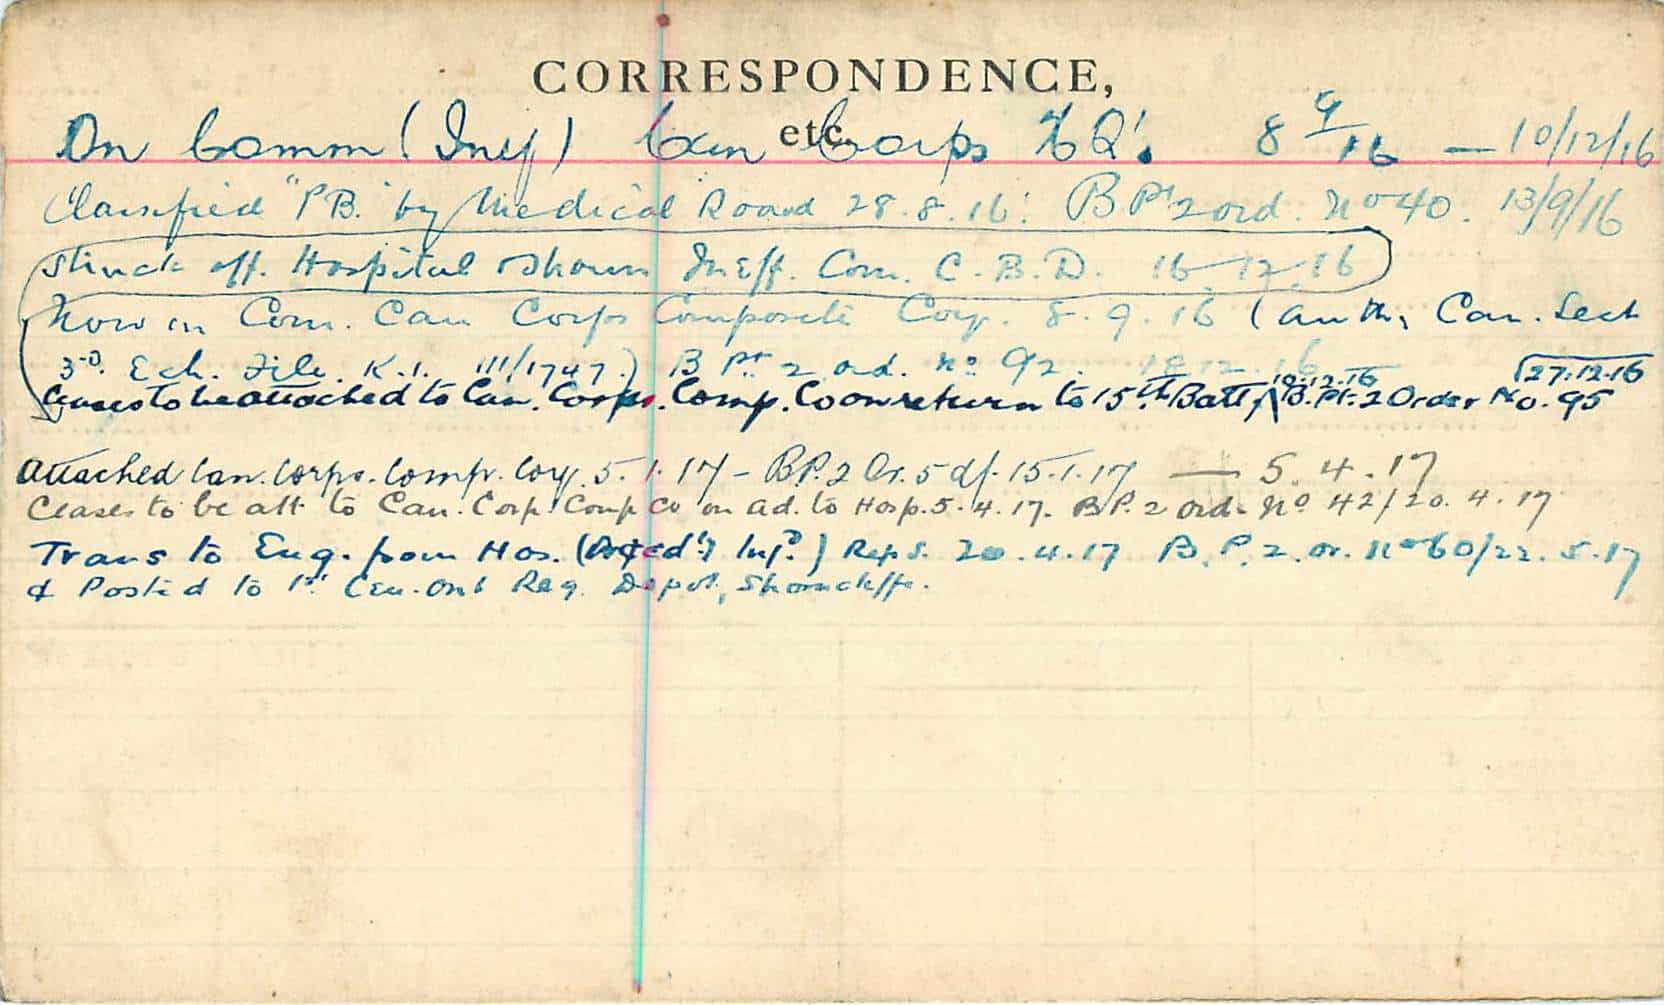 CORRESPONDENCE,
etc.
On Comm (Inef) Can Corps HQ's 8/9/16 — 10/12/16
Classified "P.B." by Medical Board 28.8.16. B Pt 2 ord. No 40. 13/9/16
Struck off. Hospital & shown Ineff. Com. C.B.D. 16-12-16
Now in Com. Can Corps Composite Coy. 8.9.16 (Auth, Can. Sect
3rd Ech. File K.1. 111/1747.) B Pt 2 ord. No 92. 18.12.16
Ceases to be attached to Can. Corps. Comp. Co on return to 15th Batt, 10.12.16 B. Pt. 2 Order No. 95 27.12.16
Attached Can. Corps. Comp. Coy. 5.1.17 - B.P. 2 Or. 5 d/. 15.1.17 — 5.4.17
Ceases to be att to Can. Corp. Comp Co on ad. to Hosp. 5.4.17. B.P. 2 ord. No 42/20.4.17
Trans to Eng. from Hos. ( Inj.) Reps. 20.4.17 B.P. 2. or. No 60/22.5.17
& Posted to 1st Cen. Ont Reg. Depot, Shorncliffe.